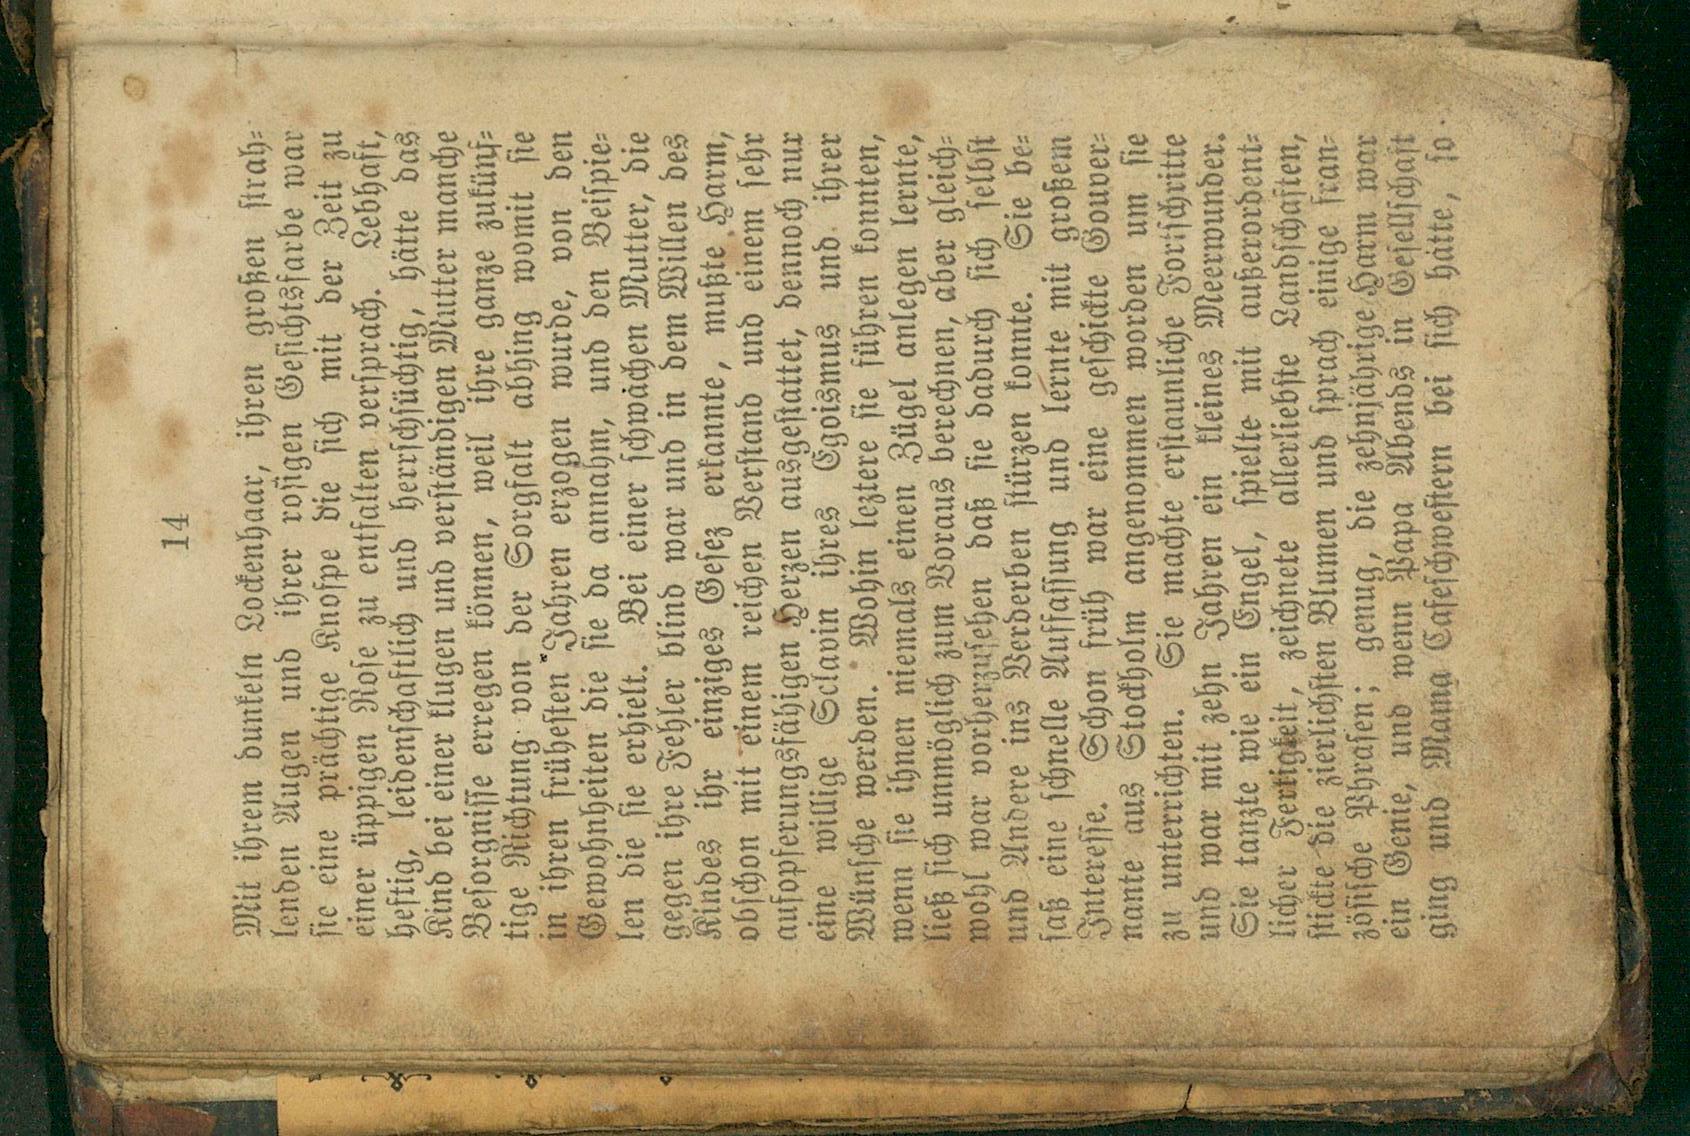 14
Mit ihrem dunkeln Lockenhaar, ihren großen strah-
lenden Augen und ihrer rosigen Gesichtsfarbe war
sie eine prächtige Knospe die sich mit der Zeit zu
einer üppigen Rose zu entfalten versprach. Lebhaft,
heftig, leidenschaftlich und herrschsüchtig, hätte das
Kind bei einer klugen und verständigen Mutter manche
Besorgnisse erregen können, weil ihre ganze zukünf-
tige Richtung von der Sorgfalt abhing womit sie
in ihren frühesten Jahren erzogen wurde, von den
Gewohnheiten die sie da annahm, und den Beispie-
len die sie erhielt. Bei einer schwachen Mutter, die
gegen ihre Fehler blind war und in dem Willen des
Kindes ihr einziges Gesez erkannte, mußte Harm,
obschon mit einem reichen Verstand und einem sehr
aufopferungsfähigen Herzen ausgestattet, dennoch nur
eine willige Sclavin ihres Egoismus und ihrer
Wünsche werden. Wohin leztere sie führen konnten,
wenn sie ihnen niemals einen Zügel anlegen lernte,
ließ sich unmöglich zum Voraus berechnen, aber gleich-
wohl war vorherzusehen daß sie dadurch sich selbst
und Andere ins Verderben stürzen konnte. Sie be-
saß eine schnelle Auffassung und lernte mit großem
Interesse. Schon früh war eine geschickte Gouver-
nante aus Stockholm angenommen worden um sie
zu unterrichten. Sie machte erstaunliche Fortschritte
und war mit zehn Jahren ein kleines Meerwunder.
Sie tanzte wie ein Engel, spielte mit außerordent-
licher Fertigkeit, zeichnete allerliebste Landschaften,
stickte die zierlichsten Blumen und sprach einige fran-
zösische Phrasen; genug, die zehnjährige Harm war
ein Genie, und wenn Papa Abends in Gesellschaft
ging und Mama Cafeschwestern bei sich hatte, so